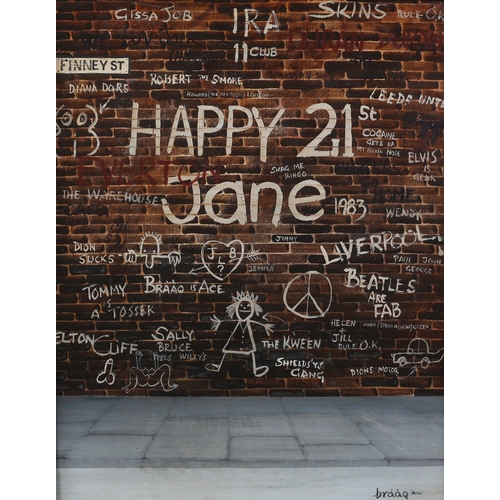 GISSA JOB
IRA
11 CLUB
SKINS RULE O.K
FINNEY ST
DIANA DORS
ROBERT THE SMOKE
LEEDS UNTD
HAPPY 21st
Jane
1983
COCAINE
GETS UP
MY NOSE
SHAG ME
RINGO
ELVIS
IS
GEAR
THE WYREHOUSE
WENDY
JIMMY
LIVERPOOL
DION
SUCKS
J B
L
?
JEMMA
PAUL JOHN
GEORGE
BRAAQ IS ACE
BEATLES
ARE
FAB
TOMMY
A TOSSER
HELEN
+
JILL
RULE O.K.
ELTON
CLIFF
SALLY
BRUCE
FEELS WILLY'S
THE KWEEN
SHIELDS'S
GANG
DIONS MOTOR
braaq